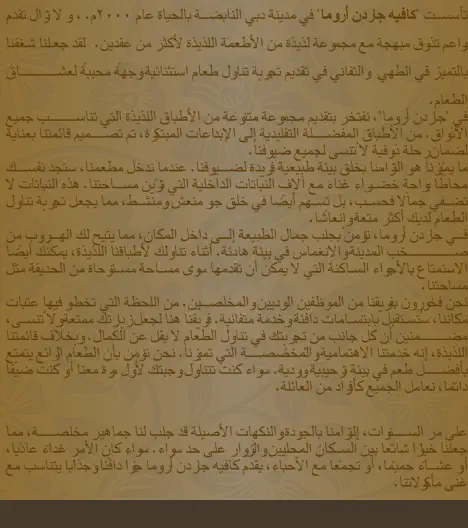 تأسست "كافيه جاردن أروما" في مدينة دبي النابضة بالحياة عام ٢٠٠٠م. ، و لا زال تقدم
واعم تذوق مبهجة مع مجموعة لذيذة من الأطعمة اللذيذة لأكثر من عقدين. لقد جعلنا شغفنا
بالتميز في الطهي والتفاني في تقديم تجربة تناول طعام استثنائية وجهة محببة لعشاق
الطعام.
في "جاردن أروما"، نفتخر بتقديم مجموعة متنوعة من الأطباق اللذيذة التي تناسب جميع
الأذواق. من الأطباق المفضلة التقليدية إلى الإبداعات المبتكرة، تم تصميم قائمتنا بعناية
لضمان رحلة ذوقية لا تنسى لجميع ضيوفنا.
ما يميزنا هو التزامنا بخلق بيئة طبيعية فريدة لضيوفنا. عندما تدخل مطعمنا، ستجد نفسك
محاطًا بواحة خضراء غناء مع آلاف النباتات الداخلية التي تزين مساحتنا. هذه النباتات لا
تضفي جمالا فحسب، بل تسهم أيضًا في خلق جو منعش ومنشط، مما يجعل تجربة تناول
الطعام لديك أكثر متعة وإنعاشا.
في جاردن أروما، نؤمن بجلب جمال الطبيعة إلى داخل المكان، مما يتيح لك الهروب من
صخب المدينة والانغماس في بيئة هادئة. أثناء تناولك لأطباقنا اللذيذة، يمكنك أيضًا
الاستمتاع بالأجواء الساكنة التي لا يمكن أن تقدمها سوى مساحة مستوحاة من الحديقة مثل
مساحتنا.
نحن فخورون بفريقنا من الموظفين الوديين والمخلصين. من اللحظة التي تخطو فيها عتبات
مكاننا، ستستقبل بابتسامات دافئة وخدمة متفانية. فريقنا هنا لجعل زيارتك ممتعة ولا تنسى،
مضمنين أن كل جانب من تجربتك في تناول الطعام لا يقل عن الكمال. وبخلاف قائمتنا
اللذيذة، إنه خدمتنا الاهتمامية والمخصصة التي تميزنا. نحن نؤمن بأن الطعام الرائع يتمتع
بأفضل طعم في بيئة ترحيبية وودية. سواء كنت تتناول وجبتك لأول مرة معنا أو كنت ضيفًا
دائما، نعامل الجميع كأفراد من العائلة.
على مر السنوات، إلتزامنا بالجودة والنكهات الأصيلة قد جلب لنا جماهير مخلصة، مما
جعلنا خيارًا شائعًا بين السكان المحليين والزوار على حد سواء. سواء كان الأمر غداء عاديا،
أو عشاء حميما، أو تجمعًا مع الأحباء، يقدم كافيه جاردن أروما جوا دافئا وجذابا يتناسب مع
غنى مأكولاتنا.